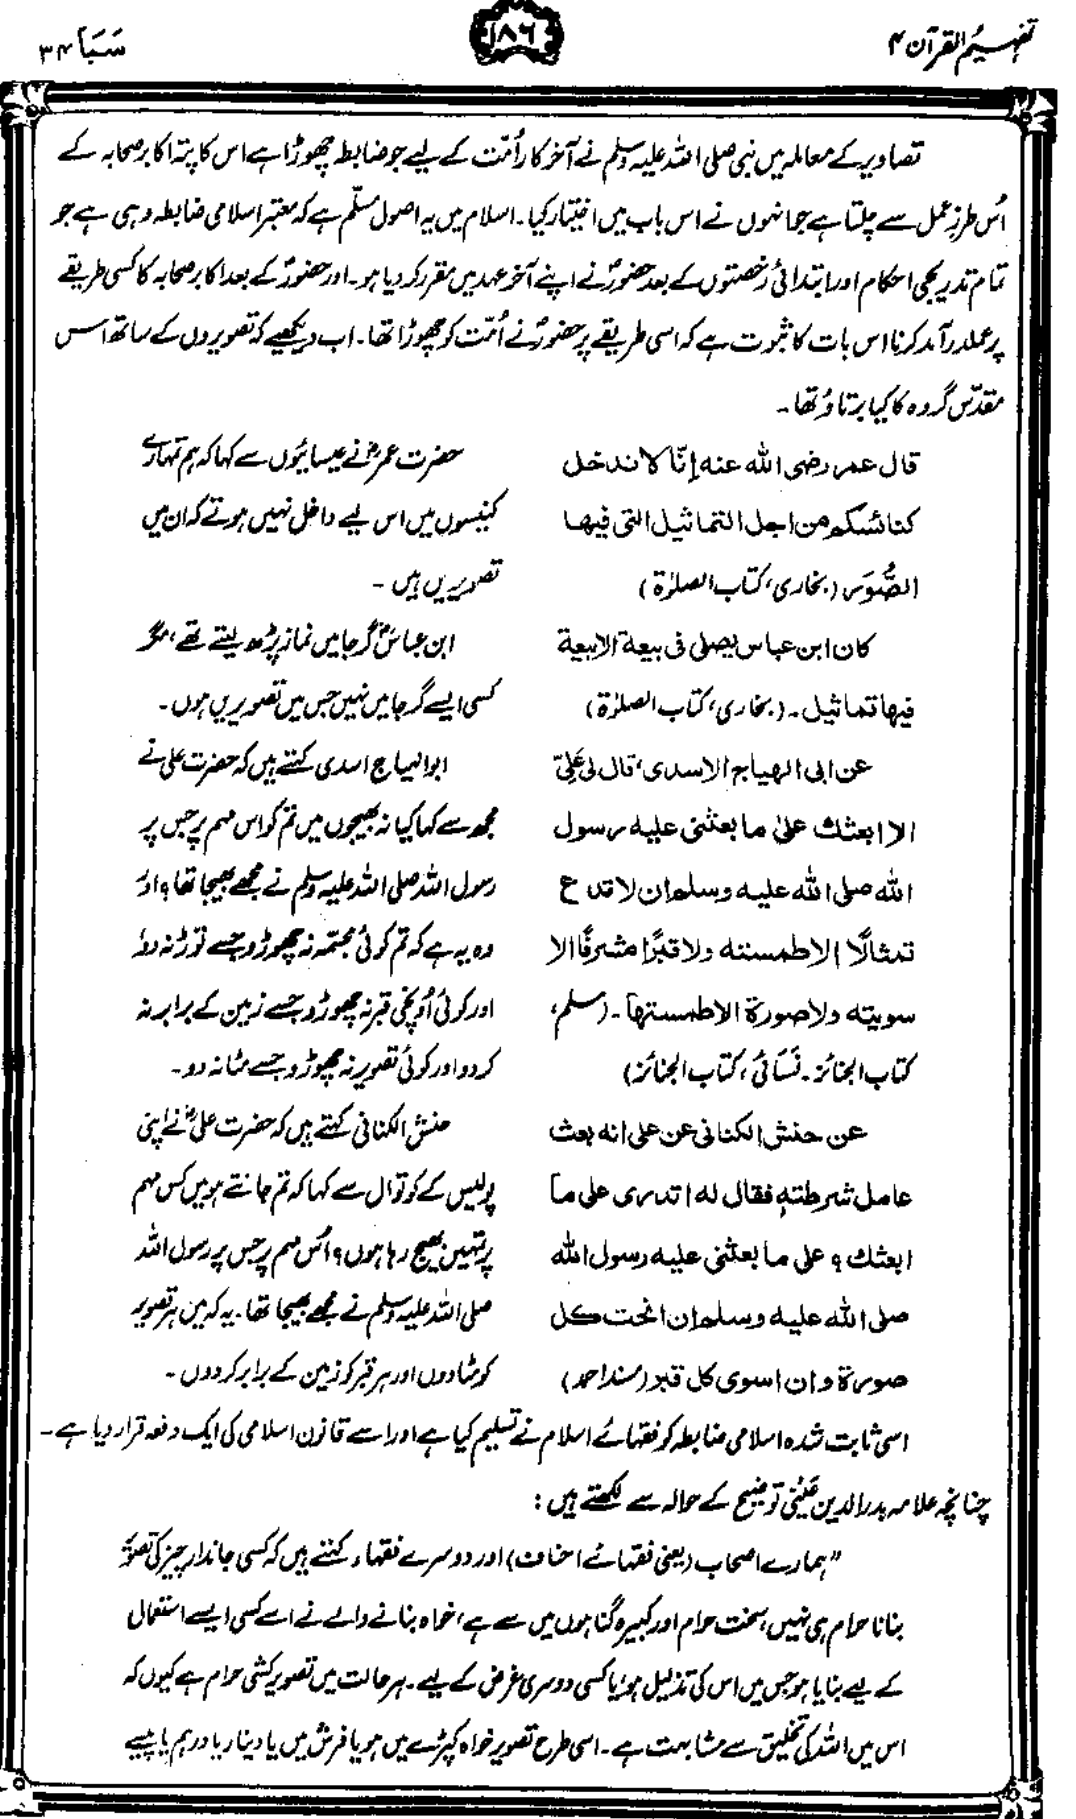 تفہیم القرآن ۴
۱۸۶
سَبَا ۳۴
تصاویر کے معاملہ میں نبی صلی اللہ علیہ وسلم نے آخر کار اُمّت کے لیے جو ضابطہ چھوڑا ہے اس کا پتہ اکابر صحابہ کے
اُس طرزِ عمل سے چلتا ہے جو انہوں نے اس باب میں اختیار کیا۔ اسلام میں یہ اصول مسلّم ہے کہ معتبر اسلامی ضابطہ وہی ہے جو
تمام تدریجی احکام اور ابتدائی رخصتوں کے بعد حضورؐ نے اپنے آخر عہد میں مقرر کر دیا ہو۔ اور حضورؐ کے بعد اکابر صحابہ کا کسی طریقے
پر عملدرآمد کرنا اس بات کا ثبوت ہے کہ اسی طریقے پر حضورؐ نے اُمّت کو چھوڑا تھا۔ اب دیکھیے کہ تصویروں کے ساتھ اس
مقدّس گروہ کا کیا برتاؤ تھا۔
قال عمر رضی اللہ عنہ إنّا لا ندخل
کنائسکم من اجل التماثیل التی فیھا
الصُّوَر (بخاری، کتاب الصلوٰۃ)
حضرت عمرؓ نے عیسائیوں سے کہا کہ ہم تمہارے
کنیسوں میں اس لیے داخل نہیں ہوتے کہ ان میں
تصویریں ہیں۔
کان ابن عباس یصلی فی بیعۃ الا بیعۃ
فیھا تماثیل۔ (بخاری، کتاب الصلوٰۃ)
ابن عباسؓ گرجا میں نماز پڑھ لیتے تھے، مگر
کسی ایسے گرجا میں نہیں جس میں تصویریں ہوں۔
عن ابی الھیاج الاسدی، قال لی عَلِیّ
الا ابعثک علیٰ ما بعثنی علیہ رسول
اللہ صلی اللہ علیہ وسلم ان لا تدع
تمثالًا الا طمستہ ولا قبرًا مشرفًا الا
سویتہ ولا صورۃ الا طمستھا۔ (مسلم،
کتاب الجنائز۔ نَسَائی، کتاب الجنائز)
ابوالہیاج اسدی کہتے ہیں کہ حضرت علی نے
مجھ سے کہا کیا نہ بھیجوں میں تم کو اس مہم پر جس پر
رسول اللہ صلی اللہ علیہ وسلم نے مجھے بھیجا تھا؟ اور
وہ یہ ہے کہ تم کوئی مجسّمہ نہ چھوڑو جسے توڑ نہ دو،
اور کوئی اُونچی قبر نہ چھوڑو جسے زمین کے برابر نہ
کر دو اور کوئی تصویر نہ چھوڑو جسے مٹا نہ دو۔
عن حنش الکنانی عن علی انہ بعث
عامل شرطتہٖ فقال لہ اتدری علی ما
ابعثک؟ علی ما بعثنی علیہ رسول اللہ
صلی اللہ علیہ وسلم ان انحت کل
صورۃ و ان اسوی کل قبر (مسند احمد)
حنش الکنانی کہتے ہیں کہ حضرت علیؓ نے اپنی
پولیس کے کوتوال سے کہا کہ تم جانتے ہو میں کس مہم
پر تمہیں بھیج رہا ہوں؟ اُس مہم پر جس پر رسول اللہ
صلی اللہ علیہ وسلم نے مجھے بھیجا تھا۔ یہ کہ میں ہر تصویر
کو مٹا دوں اور ہر قبر کو زمین کے برابر کر دوں۔
اسی ثابت شدہ اسلامی ضابطہ کو فقہائے اسلام نے تسلیم کیا ہے اور اسے قانون اسلامی کی ایک دفعہ قرار دیا ہے۔
چنانچہ علامہ بدرالدین عَینی توضیح کے حوالہ سے لکھتے ہیں:
"ہمارے اصحاب (یعنی فقہائے احناف) اور دوسرے فقہاء کہتے ہیں کہ کسی جاندار چیز کی تصویر
بنانا حرام ہی نہیں، سخت حرام اور کبیرہ گناہوں میں سے ہے، خواہ بنانے والے نے اسے کسی ایسے استعمال
کے لیے بنایا ہو جس میں اس کی تذلیل ہو، یا کسی دوسری غرض کے لیے۔ ہر حالت میں تصویر کشی حرام ہے کیوں کہ
اس میں اللہ کی تخلیق سے مشابہت ہے۔ اسی طرح تصویر خواہ کپڑے میں ہو یا فرش میں یا دینار یا درہم یا پیسے